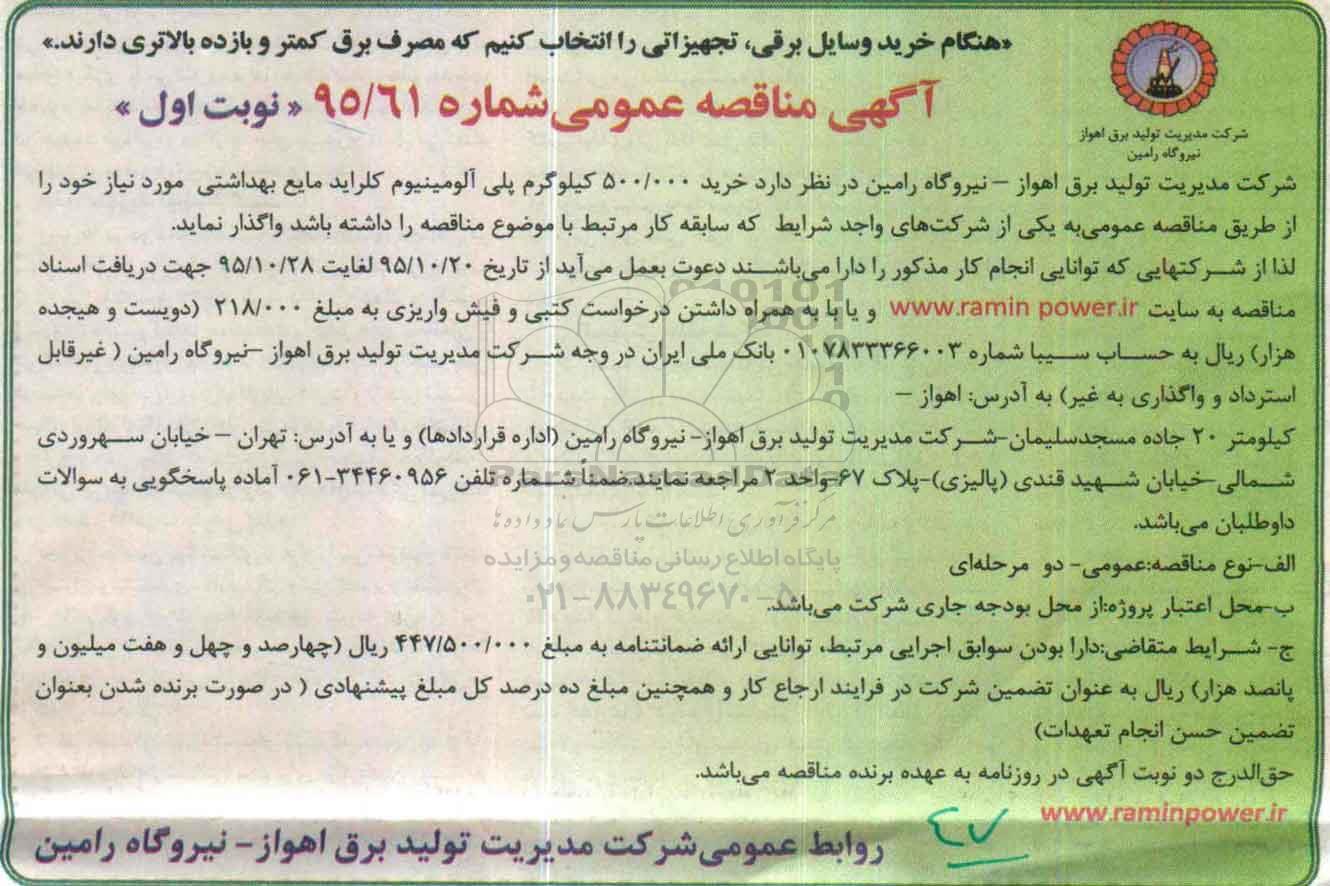 «هنگام خرید وسایل برقی، تجهیزاتی را انتخاب کنیم که مصرف برق کمتر و بازده بالاتری دارند.»
آگهی مناقصه عمومی‌شماره ۹۵/۶۱ « نوبت اول »
شرکت مدیریت تولید برق اهواز
نیروگاه رامین
شرکت مدیریت تولید برق اهواز – نیروگاه رامین در نظر دارد خرید ۵۰۰/۰۰۰ کیلوگرم پلی آلومینیوم کلراید مایع بهداشتی مورد نیاز خود را
از طریق مناقصه عمومی‌به یکی از شرکت‌های واجد شرایط که سابقه کار مرتبط با موضوع مناقصه را داشته باشد واگذار نماید.
لذا از شرکتهایی که توانایی انجام کار مذکور را دارا می‌باشند دعوت بعمل می‌آید از تاریخ ۹۵/۱۰/۲۰ لغایت ۹۵/۱۰/۲۸ جهت دریافت اسناد
مناقصه به سایت www.ramin power.ir و یا با به همراه داشتن درخواست کتبی و فیش واریزی به مبلغ ۲۱۸/۰۰۰ (دویست و هیجده
هزار) ریال به حساب سیبا شماره ۰۱۰۷۸۳۳۳۶۶۰۰۳ بانک ملی ایران در وجه شرکت مدیریت تولید برق اهواز –نیروگاه رامین ( غیرقابل
استرداد و واگذاری به غیر) به آدرس: اهواز –
کیلومتر ۲۰ جاده مسجدسلیمان-شرکت مدیریت تولید برق اهواز- نیروگاه رامین (اداره قراردادها) و یا به آدرس: تهران – خیابان سهروردی
شمالی-خیابان شهید قندی (پالیزی)-پلاک ۶۷-واحد ۲ مراجعه نمایند.ضمناً شماره تلفن ۳۴۴۶۰۹۵۶-۰۶۱ آماده پاسخگویی به سوالات
داوطلبان می‌باشد.
ParsNamadData
مرکز فرآوری اطلاعات پارس نماد داده ها
پایگاه اطلاع رسانی مناقصه و مزایده
۰۲۱-۸۸۳۴۹۶۷۰-۵
الف-نوع مناقصه:عمومی- دو مرحله‌ای
ب-محل اعتبار پروژه:از محل بودجه جاری شرکت می‌باشد.
ج- شرایط متقاضی:دارا بودن سوابق اجرایی مرتبط، توانایی ارائه ضمانتنامه به مبلغ ۴۴۷/۵۰۰/۰۰۰ ریال (چهارصد و چهل و هفت میلیون و
پانصد هزار) ریال به عنوان تضمین شرکت در فرایند ارجاع کار و همچنین مبلغ ده درصد کل مبلغ پیشنهادی ( در صورت برنده شدن بعنوان
تضمین حسن انجام تعهدات)
حق‌الدرج دو نوبت آگهی در روزنامه به عهده برنده مناقصه می‌باشد.
www.raminpower.ir
۴۷
روابط عمومی‌شرکت مدیریت تولید برق اهواز- نیروگاه رامین